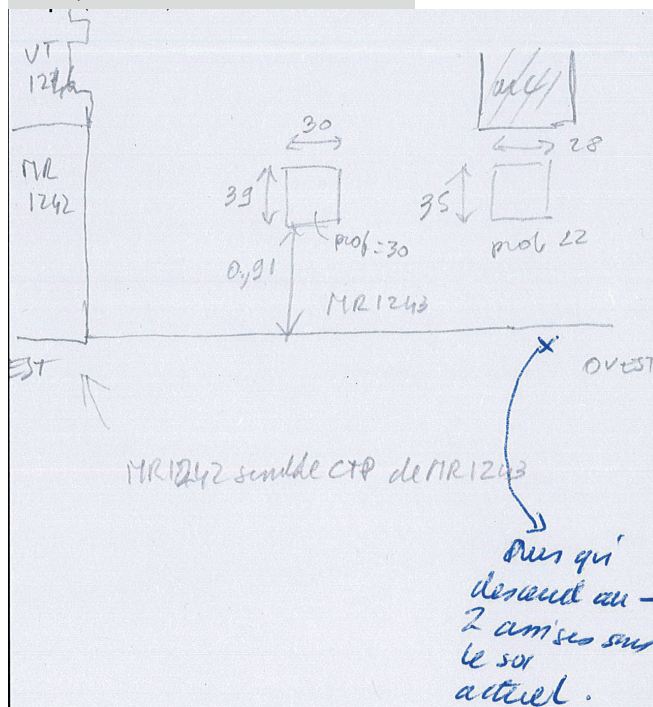 VT
MR
1242
30
39
prof=30
0,91
MR1243
28
35
prof 22
EST
OVEST
MR1242 semble CTP de MR1243
Mur qui
descend au -
2 assises sous
le sol
actuel.